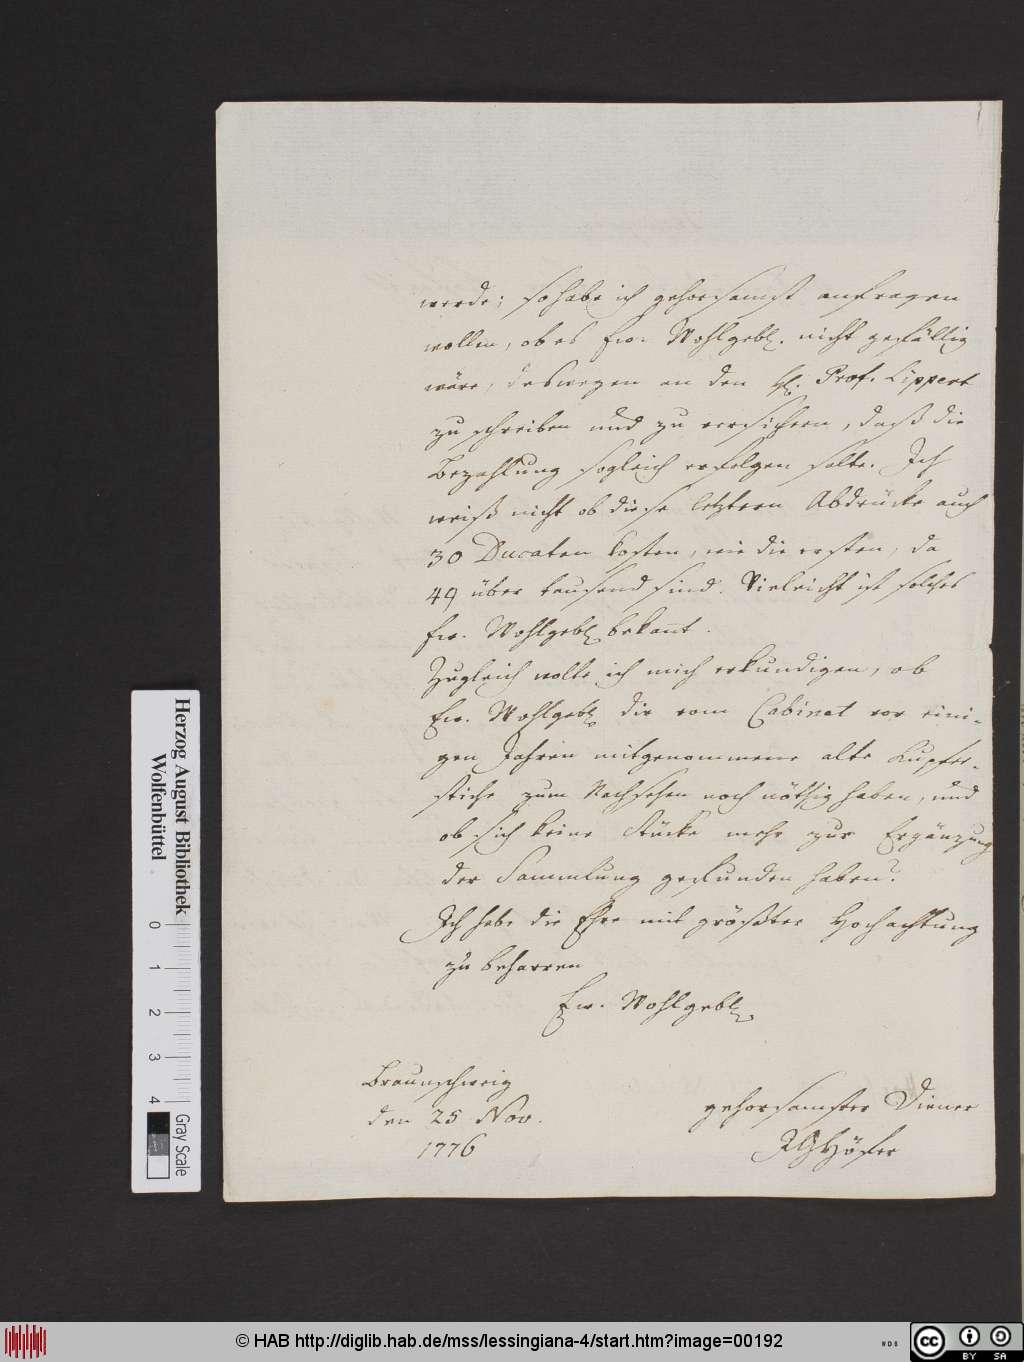 werde; so habe ich gehorsamst anfragen
wollen, ob es Ew. Wohlgebl. nicht gefällig
wäre, deswegen an den H. Prof. Lippert
zu schreiben und zu versichern, daß die
Bezahlung sogleich erfolgen solte. Ich
weiß nicht ob diese letztern Abdrücke auch
30 Ducaten kosten, wie die ersten, da
49 über tausend sind. Vieleicht ist solches
Ew. Wohlgebl. bekant.
Zugleich wolte ich mich erkundigen, ob
Ew. Wohlgebl. die vom Cabinet vor eini-
gen Jahren mitgenommene alte Kupfer-
stiche zum Nachsehen noch nöthig haben, und
ob sich keine Stücke mehr zur Ergänzung
der Sammlung gefunden haben?
Ich habe die Ehre mit größter Hochachtung
zu beharren
Ew. Wohlgebl.
Braunschweig
den 25 Nov.
1776
gehorsamster Diener
Höfer
Herzog August Bibliothek
Wolfenbüttel
0 1 2 3 4
Gray Scale
© HAB http://diglib.hab.de/mss/lessingiana-4/start.htm?image=00192
WDB
cc BY SA